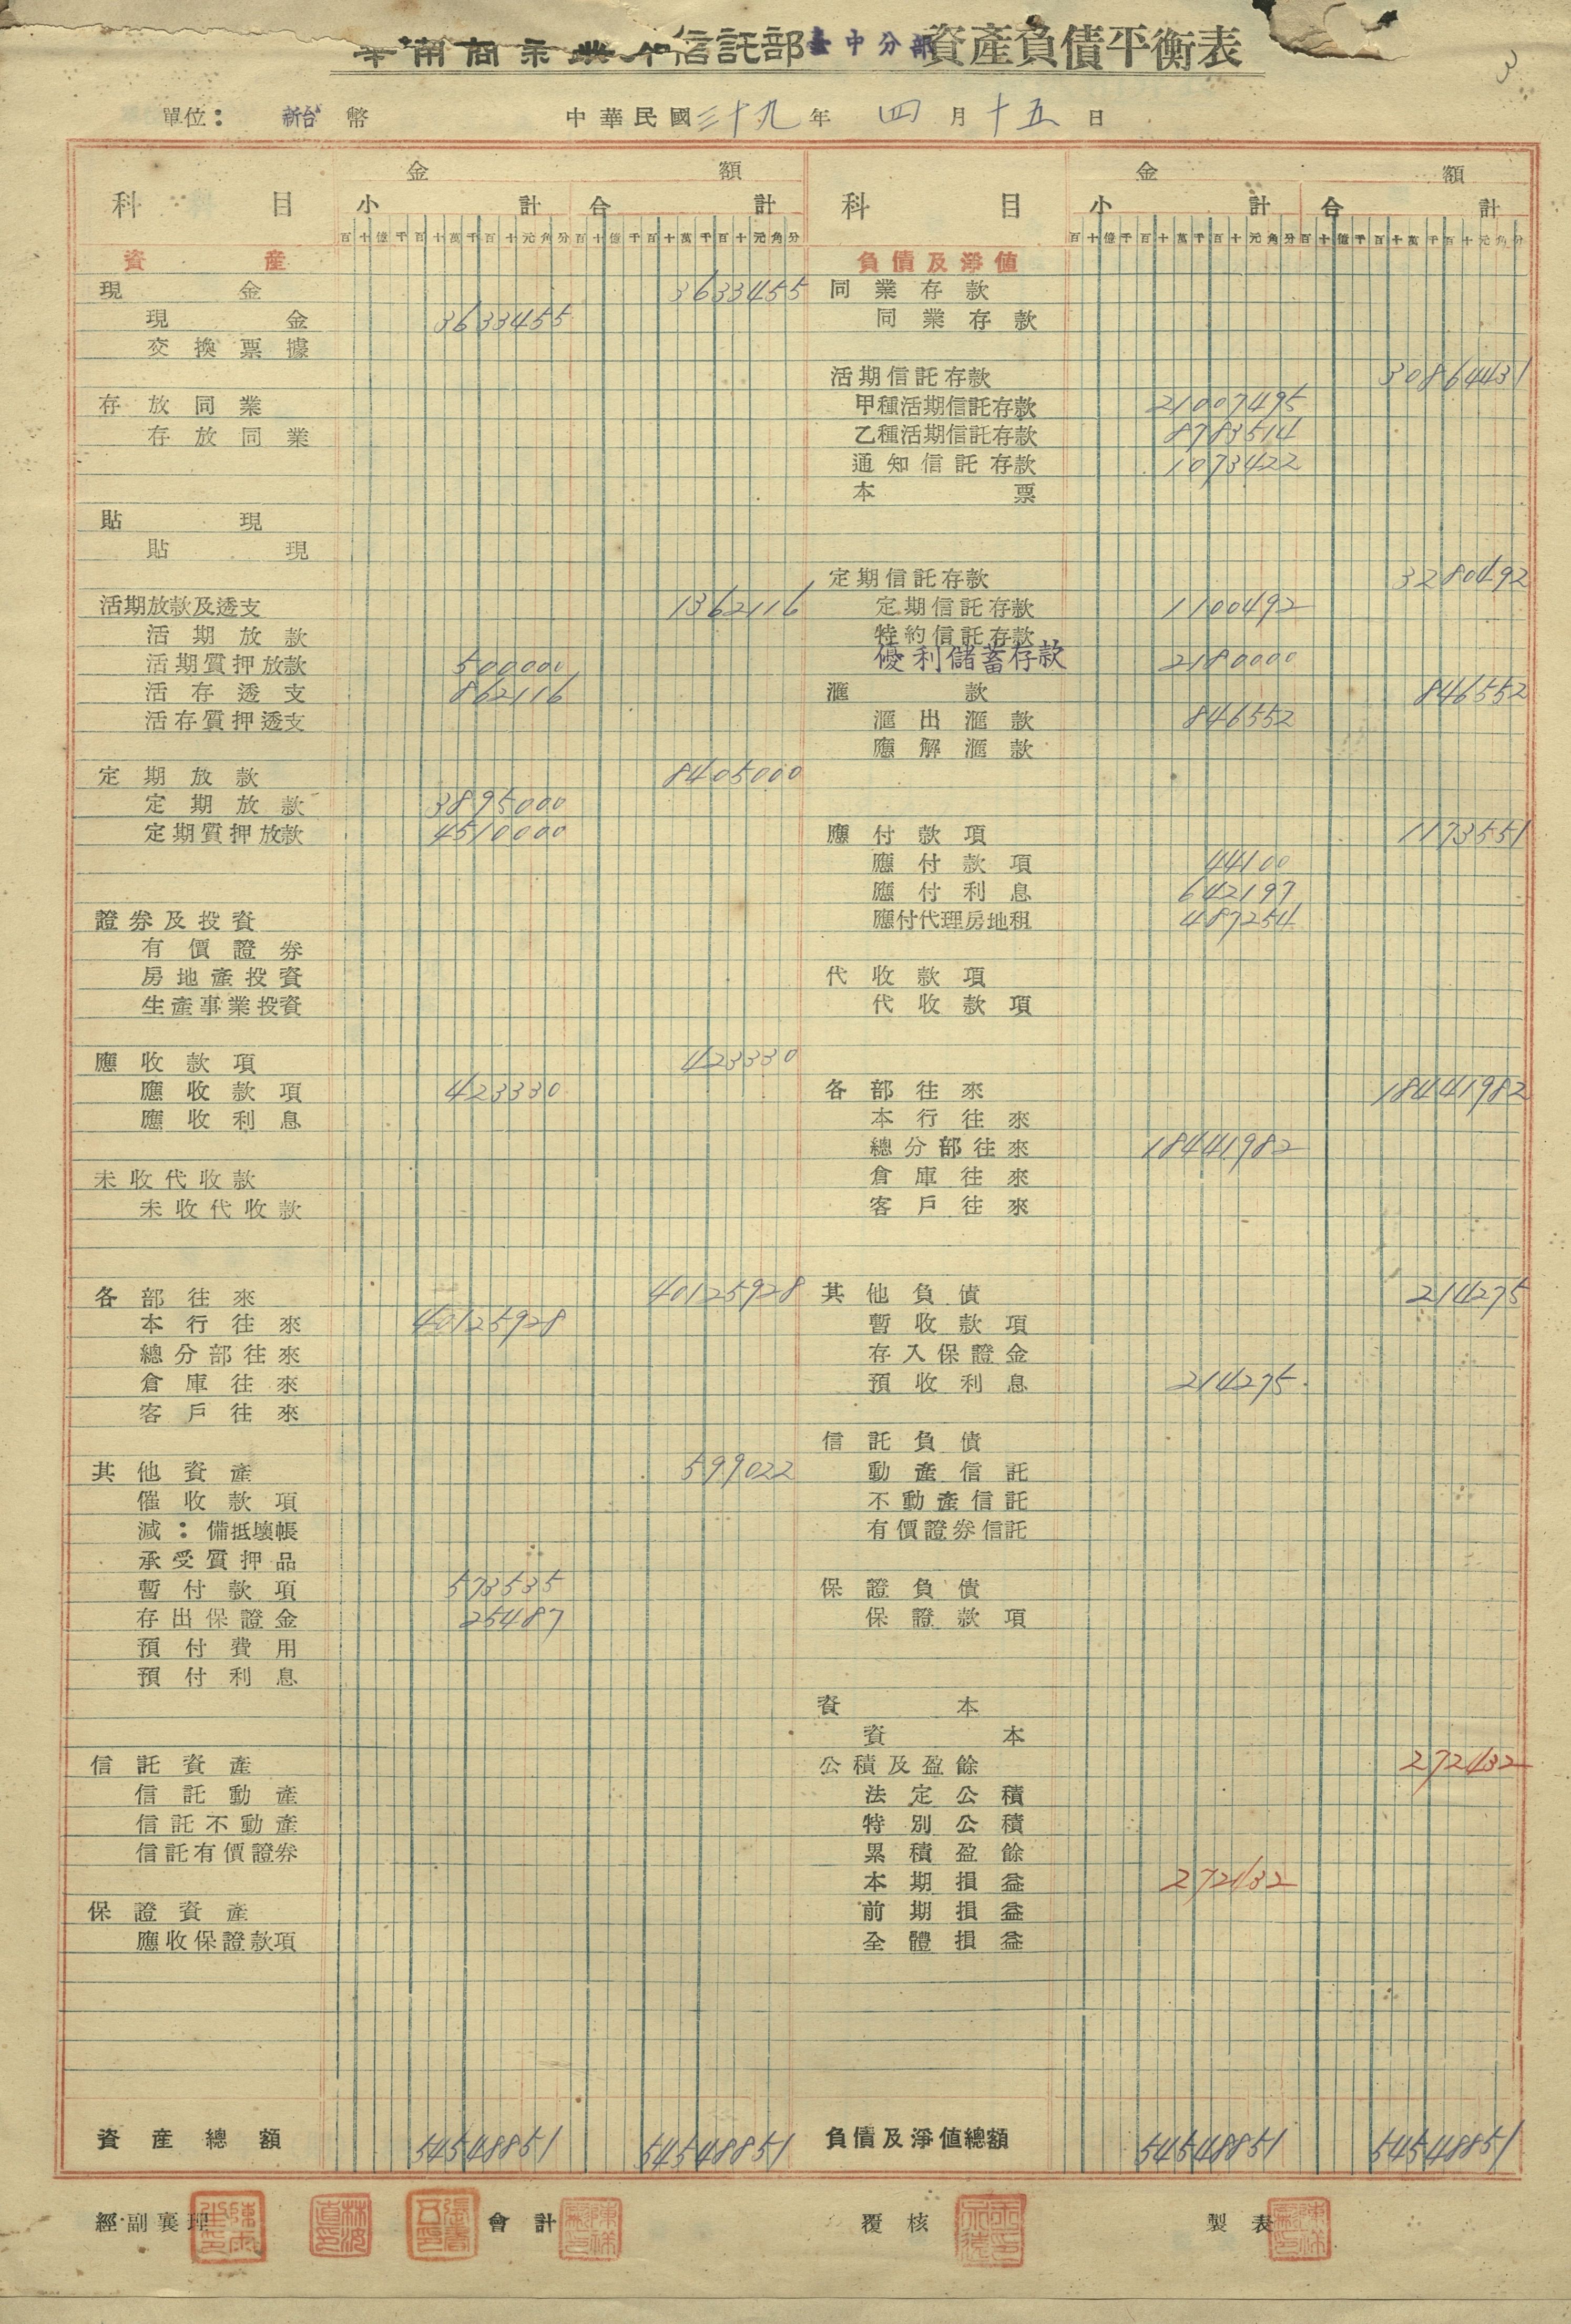 華南商業銀行信託部臺中分部資產負債平衡表
3
單位： 新台幣 中華民國三十九年四月十五日
科目 金額 科目 金額
小計 合計 小計 合計
百十億千百十萬千百十元角分 百十億千百十萬千百十元角分 百十億千百十萬千百十元角分 百十億千百十萬千百十元角分
資產 負債及淨值
現金 3633455 同業存款
現金 3633455 同業存款
交換票據
活期信託存款 30864431
存放同業 甲種活期信託存款 21007495
存放同業 乙種活期信託存款 8783514
通知信託存款 1073422
本票
貼現
貼現
定期信託存款 3280492
活期放款及透支 1362116 定期信託存款 1100492
活期放款 特約信託存款
活期質押放款 500000 優利儲蓄存款 2180000
活存透支 862116 滙款 846552
活存質押透支 滙出滙款 846552
應解滙款
定期放款 8405000
定期放款 3895000
定期質押放款 4510000 應付款項 1173551
應付款項 44100
應付利息 642197
證券及投資 應付代理房地租 487254
有價證券
房地產投資 代收款項
生產事業投資 代收款項
應收款項 423330
應收款項 423330 各部往來 18441982
應收利息 本行往來
總分部往來 18441982
未收代收款 倉庫往來
未收代收款 客戶往來
各部往來 40125928 其他負債 214275
本行往來 40125928 暫收款項
總分部往來 存入保證金
倉庫往來 預收利息 214275
客戶往來
信託負債
其他資產 599022 動產信託
催收款項 不動產信託
減：備抵壞帳 有價證券信託
承受質押品
暫付款項 573535 保證負債
存出保證金 25487 保證款項
預付費用
預付利息
資本
資本
信託資產 公積及盈餘 272432
信託動產 法定公積
信託不動產 特別公積
信託有價證券 累積盈餘
本期損益 272432
保證資產 前期損益
應收保證款項 全體損益
資產總額 54548851 54548851 負債及淨值總額 54548851 54548851
經副襄理 會計 覆核 製表